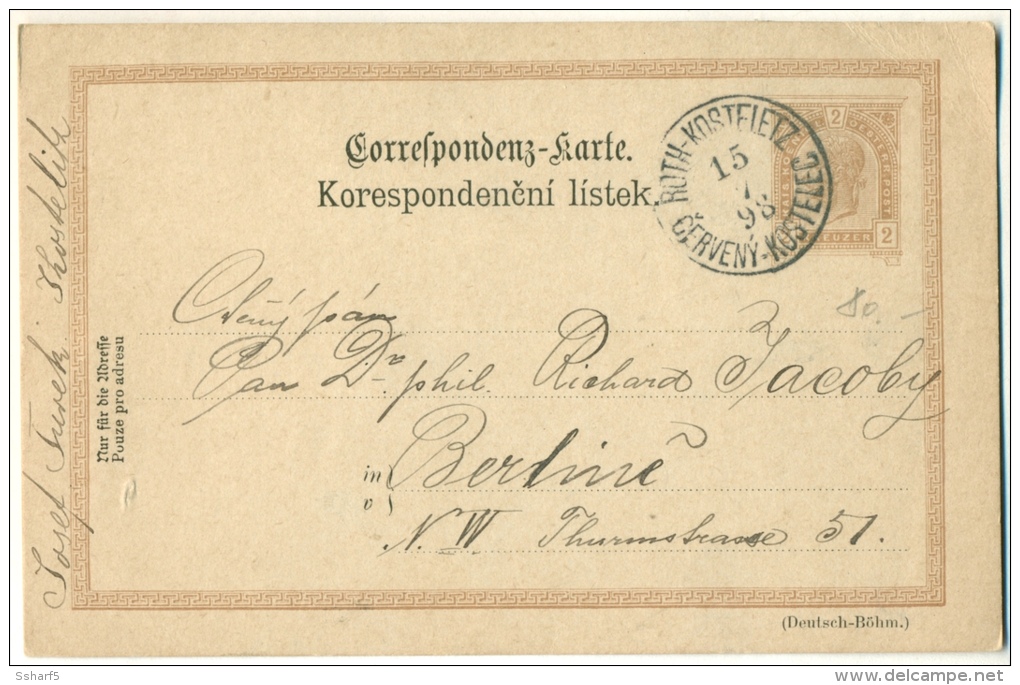 Correspondenz-Karte.
Korespondenční lístek.
ROTH-KOSTELETZ
15
98
ČERVENÝ-KOSTELEC
2
2
80.-
pán
Pan Dr. phil. Richard Jacoby
in
v
Berlině
N. W Thurmstrasse 51.
Nur für die Adresse
Pouze pro adresu
Josef Turek.
(Deutsch-Böhm.)
Ssharf5
www.delcampe.net